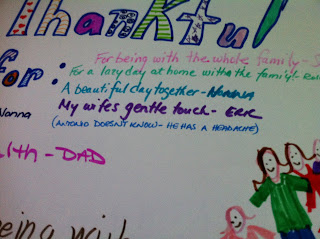 Thankful
for:
For being with the whole family - S
For a lazy day at home with the family! -
A beautiful day together - Nonna
Nonna
My wifes gentle touch - ERIC
(ANTONIO DOESN'T KNOW - HE HAS A HEADACHE)
lth - DAD
eing with